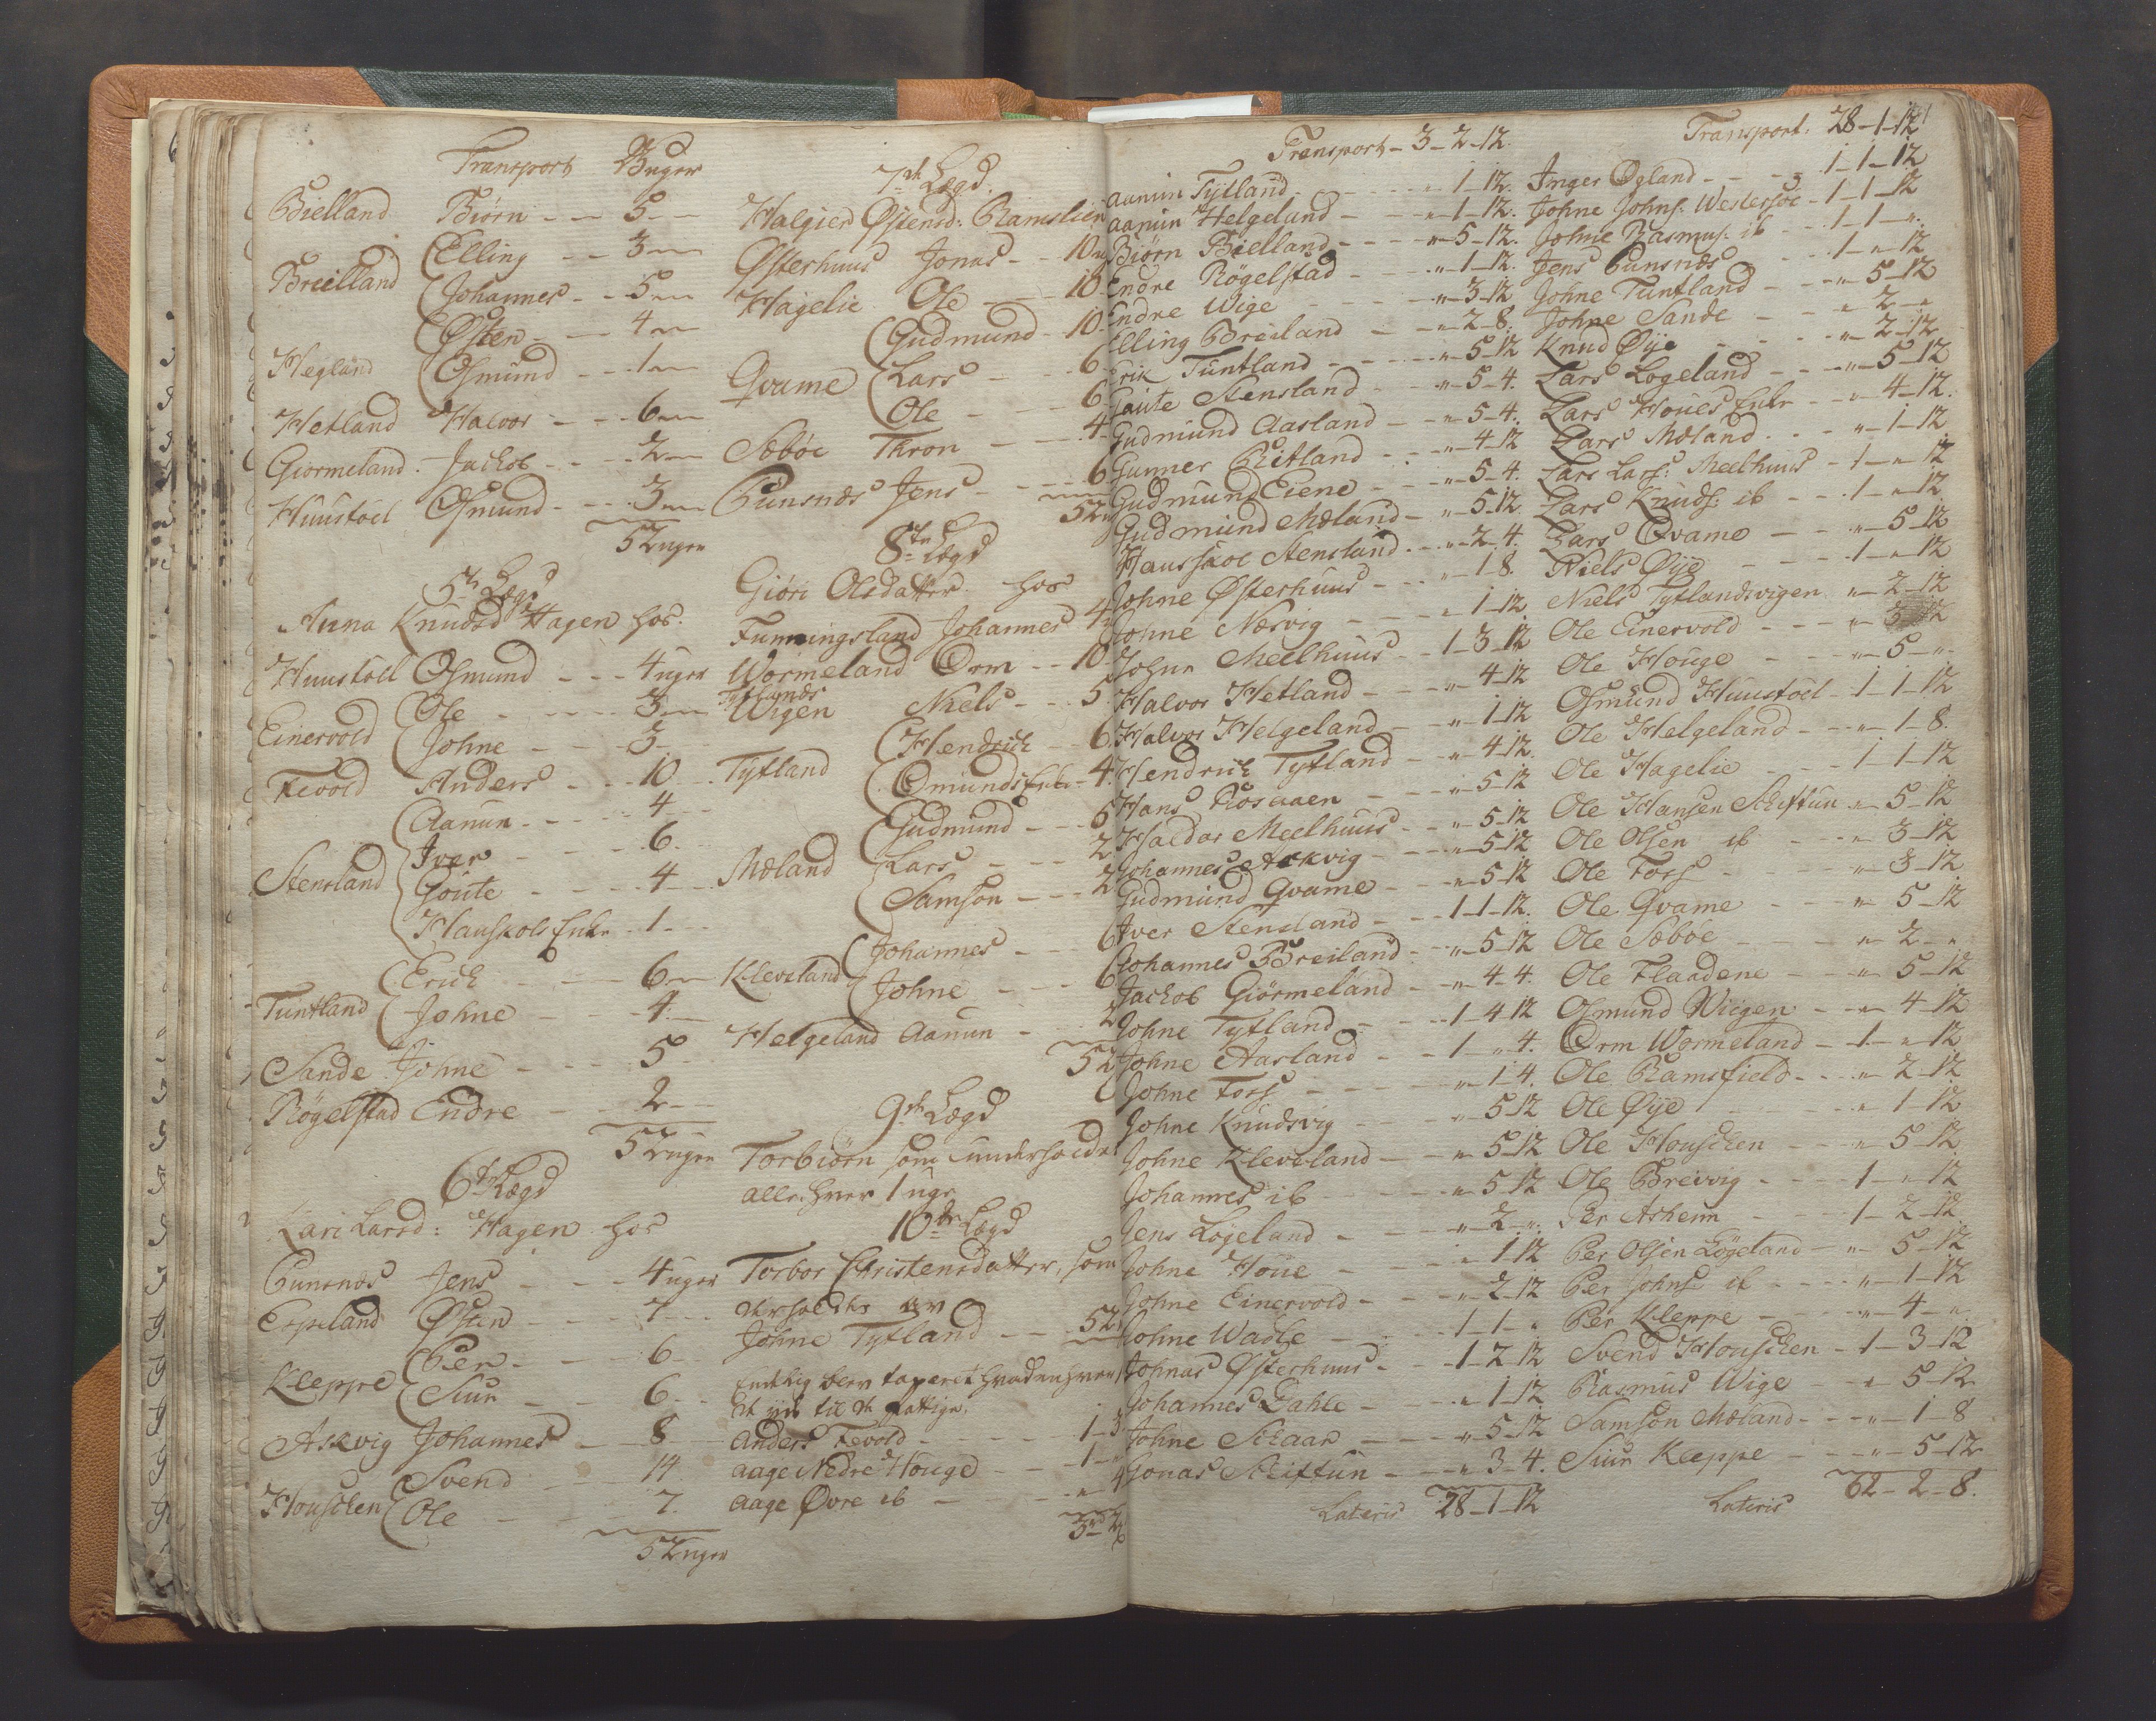 Transport 23 uger
Bielland Biørn - - 5 -
Breilland Elling - - 3 -
Johannes - - 5 -
Østen - - 4 -
Hegland Osmund - - 1 -
Hetland Halvor - - 6 -
Giormeland Jackob - - 2 -
Huustoel Osmund - - 3 -
52 uger
5te Lægd
Anna Knudsd Hagen hos
Huustoel Osmund - - 4 uger
Einervold Ole - - 3 -
Johne - - 3
Fevold Anders - - 10
Aanun - - 4
Stensland Iver - - 6
Goute - - 4
Hauskols Enke - 1
Tuntland Erich - - 6
Johne - - 4
Sande Johne - - 5
Rögelstad Endre - - 2
52 uger
6te Lægd
Kari Larsd: Hagen hos
Gunsnæs Jens - - 4 uger
Espeland Østen - - 7
Kleppe Peer - - 6
Siur - - 6
Askvig Johannes - 8
Houschen Svend - 14
Ole - - 7
52 uger
7de Lægd.
Halgierd Østensd: Ramslien
Østerhuus Jonas - - 10
Hagelie Ole - - 10
Qvame Gudmund - 10
Lars - - 6
Ole - - 6
Sæbøe Thron - - 4
Gunsnæs Jens - - 6
52
8de Lægd
Giøri Olsdatter hos
Funningsland Johannes 4
Wormeland Orm - - 10
Tytlands
Wigen Niels - - 5
Tytland Hendrich - 6
Omunds Enke - 4
Mæland Gudmund - - 5
Lars - - 2
Samson - - 2
Kleveland Johannes - - 6
Johne - - 6
Helgeland Aanun - 2
52
9de Lægd
Torbiørn som underholdes
alle hver 1 uge
10de Lægd
Torbor Christensdatter, som
Johne Tytland - - 52
Anders Fevold - - 1-3
Aage Nedre Houge - - 1-
Aage Øvre ib - - 4
Transport - 3-2-12.
Aanun Tytland - - „-1-12.
Aanun Helgeland - - „-1-12.
Biørn Bielland - - „-5-12.
Endre Rögelstad - - „-1-12.
Endre Wige - - „-3-12
Elling Breiland - - „-2-8.
Erik Tuntland - - „-5-12
Gaute Stensland - - „-5-4.
Gudmund Aasland - - „-5-4.
Gunner Ritland - - „-4-12
Gudmund Eiene - - „-5-4.
Gudmund Mæland - „-5-12.
Hausskoe Stensland - - „-2-4.
Johne Østerhuus - - „-1-8.
Johne Næsvig - - „-1-12
Johne Meelhuus - - 1-3-12
Halvor Hetland - - „-4-12
Halvor Helgeland - - „-1-12
Hendrich Tytland - - „-4-12.
Hans Rosaaen - - „-5-12
Haldor Meelhuus - - „-5-12
Johannes Askvig - - „-5-12
Gudmund Qvame - - „-5-12
Iver Stensland - - 1-1-12.
Johannes Breiland - - „-5-12
Jackob Giörmeland - - „-4-4.
Johne Tytland - - 1-4-12
Johne Aasland - - 1-„-4.
Johne Foss - - „-1-4.
Johne Knudsvig - - „-5-12
Johne Kleveland - - „-5-12
Johannes ib - - „-5-12
Jens Løgeland - - „-2-„.
Johne Houe - - „-1-12
Johne Einervold - - „-2-12
Johne Wadle - - 1-1-„
Johnas Østerhuus - - 1-2-12
Johannes Dahle - - „-1-12
Johne Schaar - - „-5-12
Jonas Schiftun - - „-3-4.
Lateris 28-1-12
Transport 28-1-12
Inger Øgland - - 1-1-12
Johne Johns: Westersøe - 1-1-12
Johne Rasmus: ib - - 1-1-„.
Jens Gunsnæs - - 1-„-12
Johne Tuntland - - „-5-12
Johne Sande - - „-2-„
Knud Øye - - „-2-12
Lars Løgeland - - „-5-12
Lars Houes Enke - - „-4-12.
Lars Mæland - - „-1-12
Lars Lars: Meelhuus - 1-„-12
Lars Knuds: ib - - 1-„-12
Lars Qvame - - „-5-12
Niels Øye - - 1-„-12
Niels Tytlandsvigen „-2-12
Ole Einervold - -
Ole Houge - - „-5-„
Osmund Huustoel - 1-1-12
Ole Helgeland - - „-1-8.
Ole Hagelie - - 1-1-12
Ole Hansen Schiftun - „-5-12
Ole Olsen ib - - „-3-12
Ole Foss - - „-3-12
Ole Qvame - - „-5-12
Ole Sæbøe - - „-2-„
Ole Flaadene - - „-5-12
Osmund Wiigen - - „-4-12
Orm Wormeland - 1-„-12
Ole Ramsfield - - „-2-12
Ole Øye - - „-1-12
Ole Houschen - - „-5-12
Ole Breivig - - 1-„-12
Per Asheim - - 1-2-12
Per Olsen Løgeland - „-5-12
Per Johns: ib - - „-1-12
Per Kleppe - - „-4-„
Svend Houschen - 1-3-12
Rasmus Wige - - „-5-12
Samson Mæland - - „-1-8
Siur Kleppe - - „-5-12
Lateris 62-2-8.